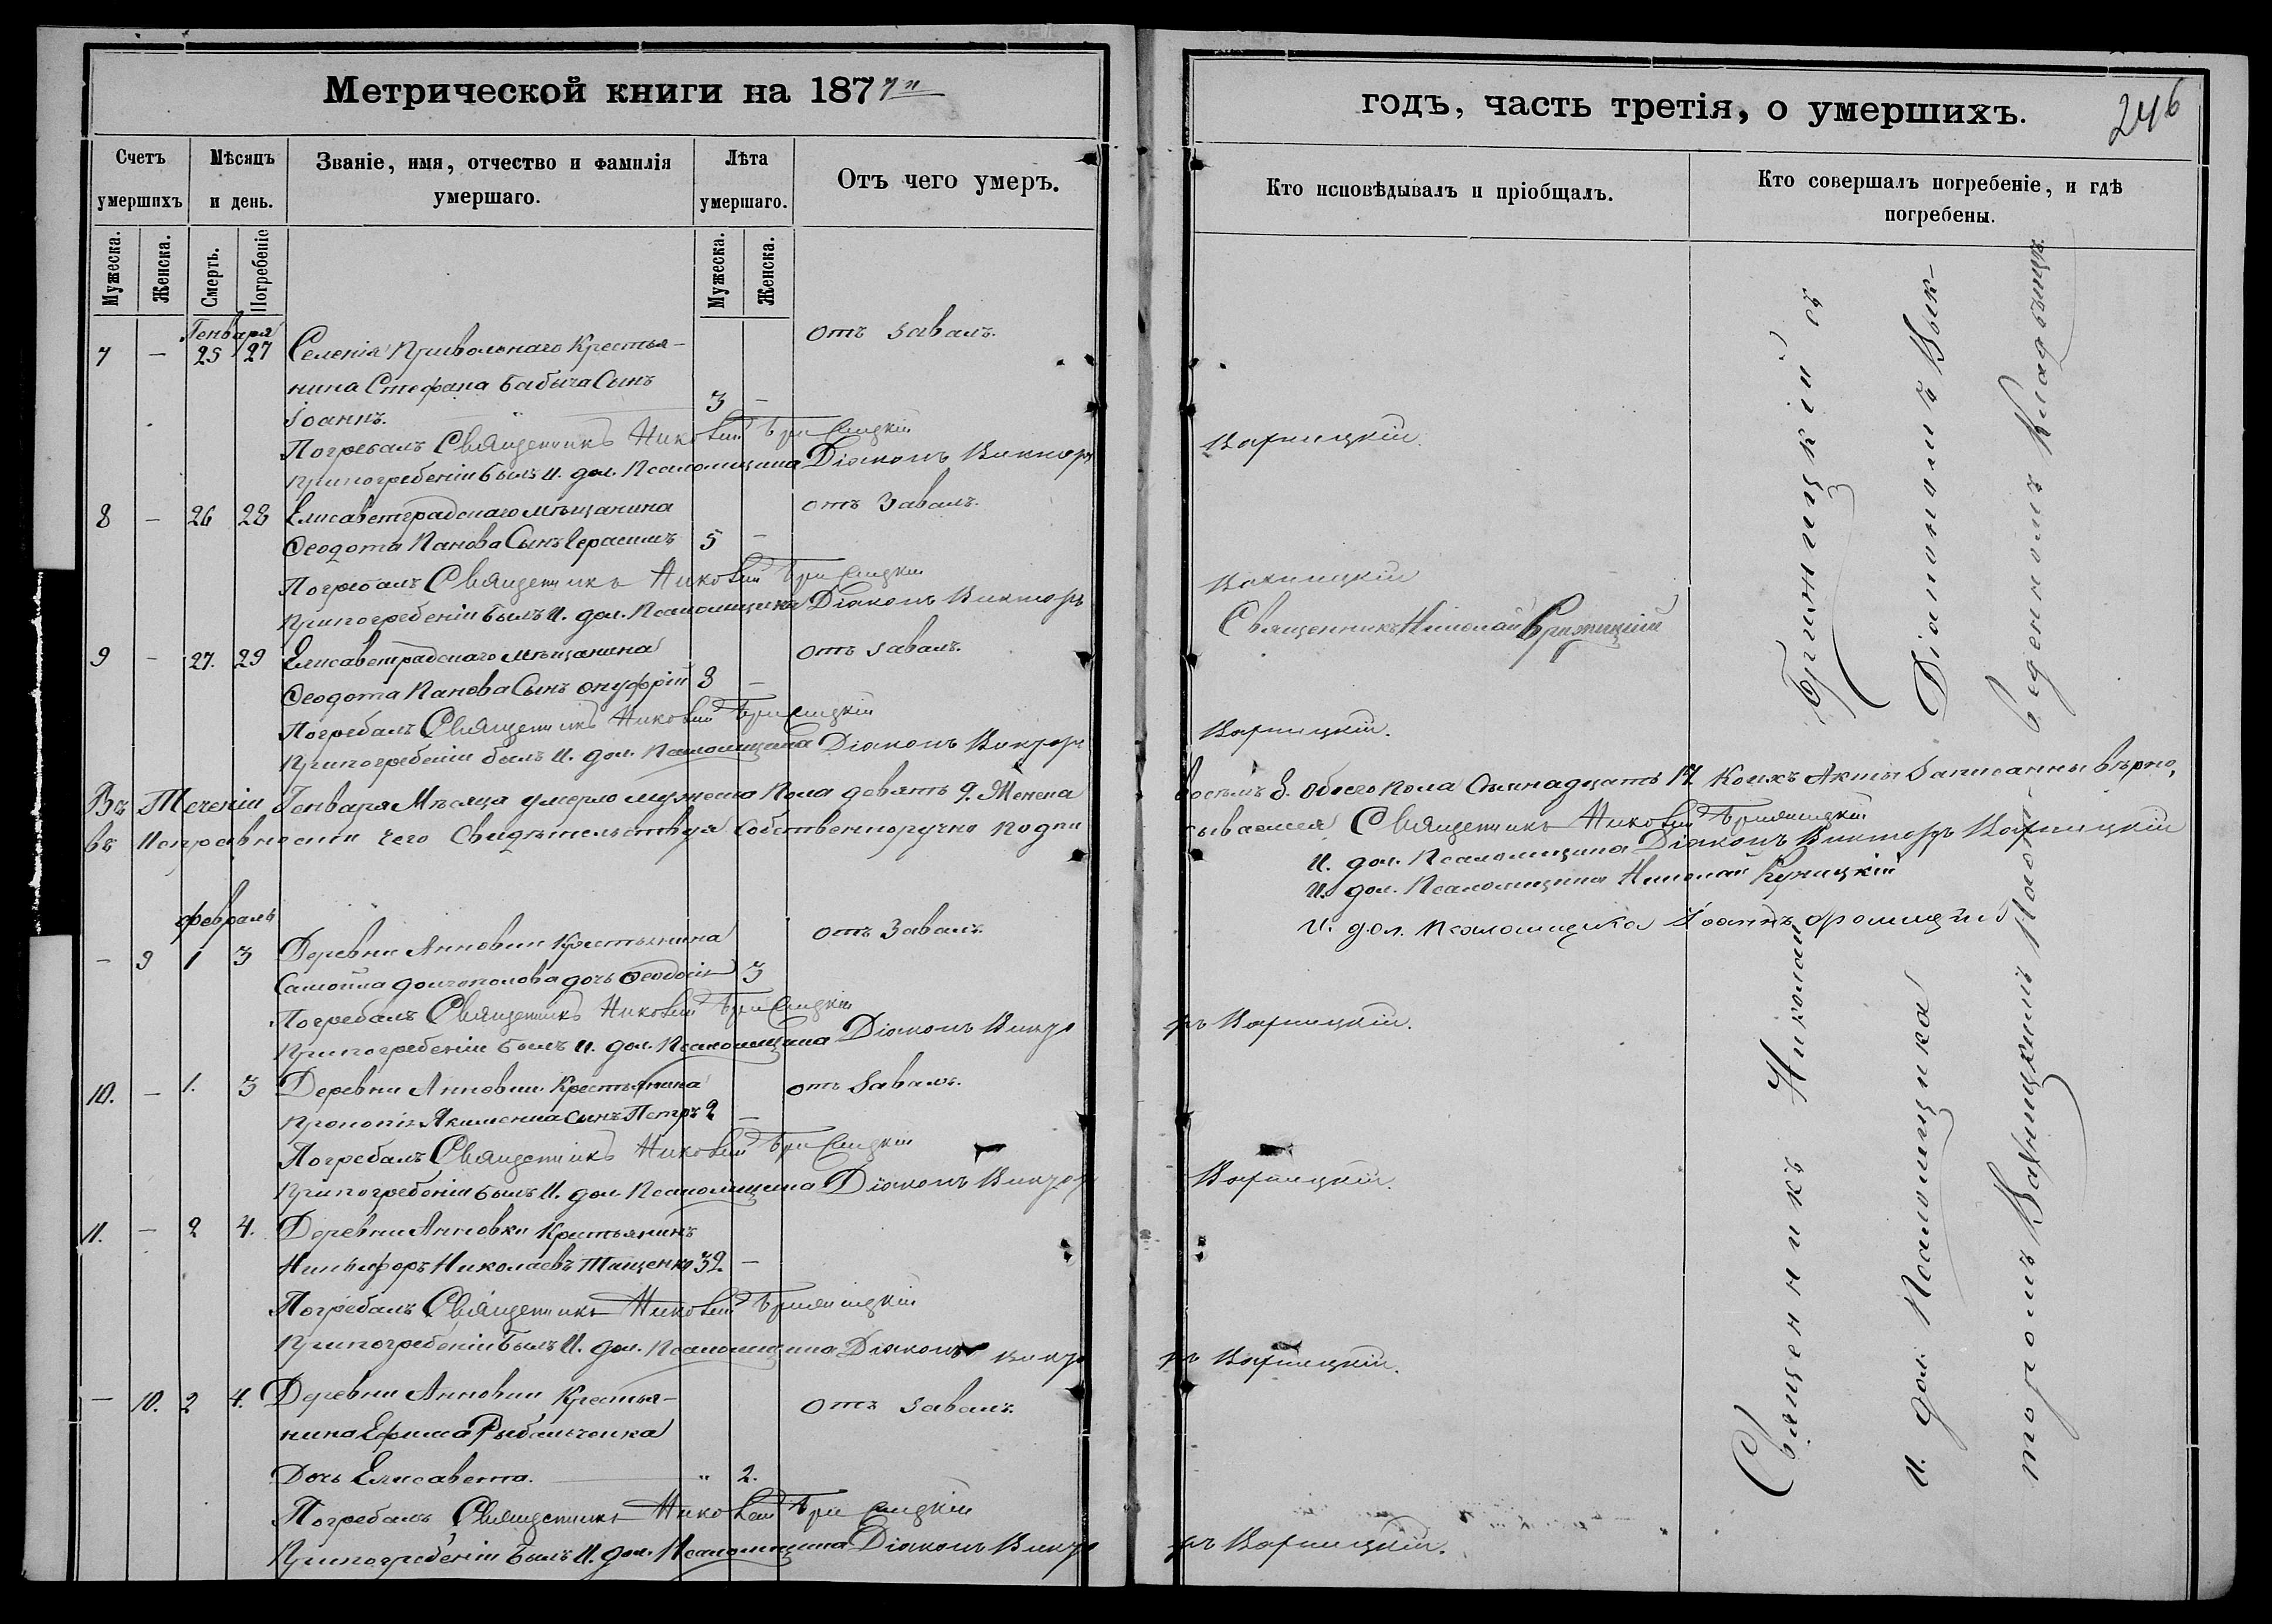 Метрической книги на 1877й
Счетъ умершихъ
Мѣсяцъ и день.
Званіе, имя, отчество и фамилія
умершаго.
Лѣта умершаго.
Отъ чего умеръ.
Мужеска.
Женска.
Смерть.
Погребеніе
Мужеска.
Женска.
Генваря
7 — 25 27 Селенія Привольнаго Крестья- отъ завалъ.
нина Стефана Бабыча Сынъ
Іоаннъ. 3 —
Погребалъ Священникъ Николай
При погребеніи былъ И. дол. Псаломщика Діаконъ Викторъ
8 — 26 28 Елисаветградскаго мѣщанина отъ завалъ.
Феодота Панова Сынъ Герасимъ 5 —
Погребалъ Священникъ Николай
При погребеніи былъ И. дол. Псаломщика Діаконъ Викторъ
9 — 27. 29 Елисаветградскаго мѣщанина отъ завалъ.
Феодота Панова Сынъ Онуфрій 8 —
Погребалъ Священникъ Николай
При погребеніи былъ И. дол. Псаломщика Діаконъ Викторъ
Въ Теченіи Генваря Мѣсяца умерло мужеска Пола девять 9. Женска
въ Исправности чего Свидѣтельствуя Собственноручно подпи
февраль
— 9 1 3 Деревни Анновки Крестьянина отъ завалъ.
Самойла долгополова дочь Феодосія 3
Погребалъ Священникъ Николай
При погребеніи былъ И. дол. Псаломщика Діаконъ Викто
10. — 1. 3 Деревни Анновки Крестьянина отъ завалъ.
Прокопія Якименка сынъ Петръ 2 —
Погребалъ Священникъ Николай
При погребеніи былъ И. дол. Псаломщика Діаконъ Виктор
11. — 2 4. Деревни Анновки Крестьянинъ
Никифоръ Николаевъ Тащенко 32. —
Погребалъ Священникъ Николай
При погребеніи былъ И. дол. Псаломщика Діаконъ Викто
— 10. 2 4. Деревни Анновки Крестья- отъ завалъ.
нина Ефима Рыбальченка
Дочь Елисавета. " 2.
Погребалъ Священникъ Николай
При погребеніи былъ И. дол. Псаломщика Діаконъ Викто
годъ, часть третія, о умершихъ.
246
Кто исповѣдывалъ и пріобщалъ.
Кто совершалъ погребеніе, и гдѣ
погребены.
Варницкій.
Варницкій
Священникъ Николай Бржицкій
Варницкій.
восемь 8. Обоего пола Семнадцать 17 Коихъ Акты Записанны вѣрно,
сываемся Священникъ Николай
И. дол. Псаломщика Діаконъ Викторъ Варницкій
И. дол. Псаломщика Николай
И. дол. Псаломщика Іоаннъ
ръ Варницкій.
Варницкій.
ръ Варницкій.
ръ Варницкій.
Священникъ Николай съ
И. дол. Псаломщика Діакономъ Вик-
торомъ Варницкимъ на веденскомъ Кладбищѣ.